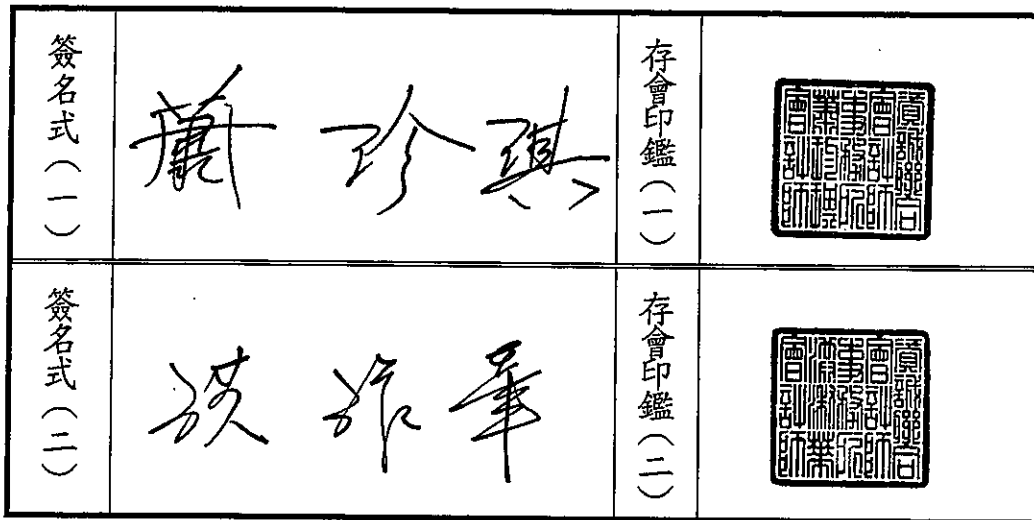 簽名式(一)
蕭珍琪
存會印鑑(一)
資誠聯合
會計師
事務所
蕭珍琪
會計師
簽名式(二)
洪淑華
存會印鑑(二)
資誠聯合
會計師
事務所
洪淑華
會計師